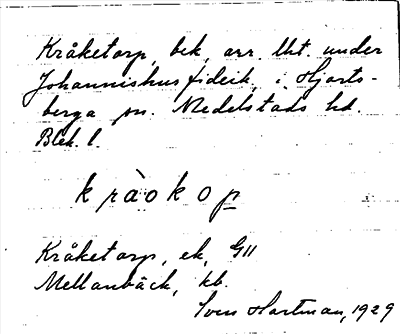 Kråketorp, bek, arr. lht. under
Johannishus fideik, i Hjorts-
berga sn. Medelstads hd.
Blek. l.
kràokop
Kråketorp, ek, G11
Mellanbäck, kb.
Sven Hartman, 1929